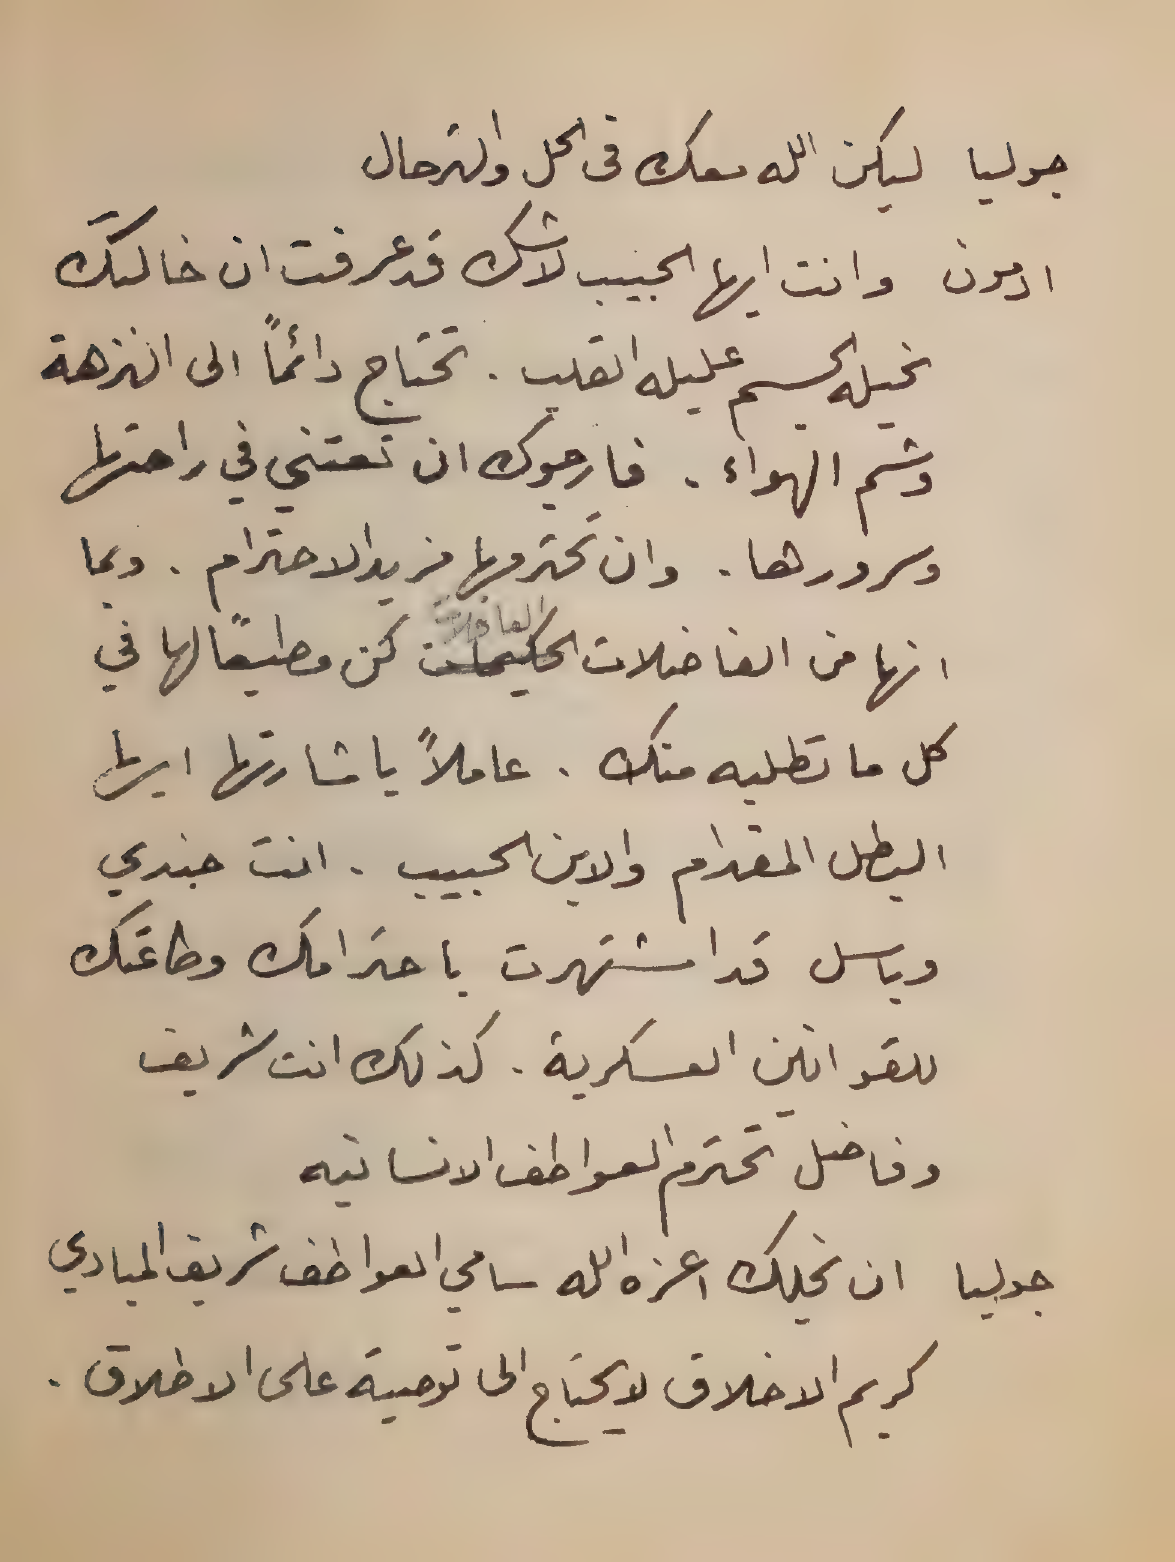 جوليا ليكن الله معك في الحل والترحال
ادمون وانت ايها الحبيب لاشك قد عرفت ان خالتك
نحيله الجسم عليله القلب . تحتاج دائماً الى النزهة
وشم الهواء . فارجوك ان تعتني في راحتها
وسرورها . وان تحترمها مزيد الاحترام . وبما
انها من الفاضلات العاقلات كن مطيعًا لها في
كل ما تطلبه منك . عاملاً باشارتها ايها
البطل المقدام والابن الحبيب . انت جندي
وباسل قد اشتهرت باحترامك وطاعتك
للقوانين العسكرية . كذلك انت شريف
وفاضل تحترم العواطف الانسانيه
جوليا ان نجلك اعزه الله سامي العواطف شريف المبادي
كريم الاخلاق لا يحتاج الى توصية على الاطلاق .